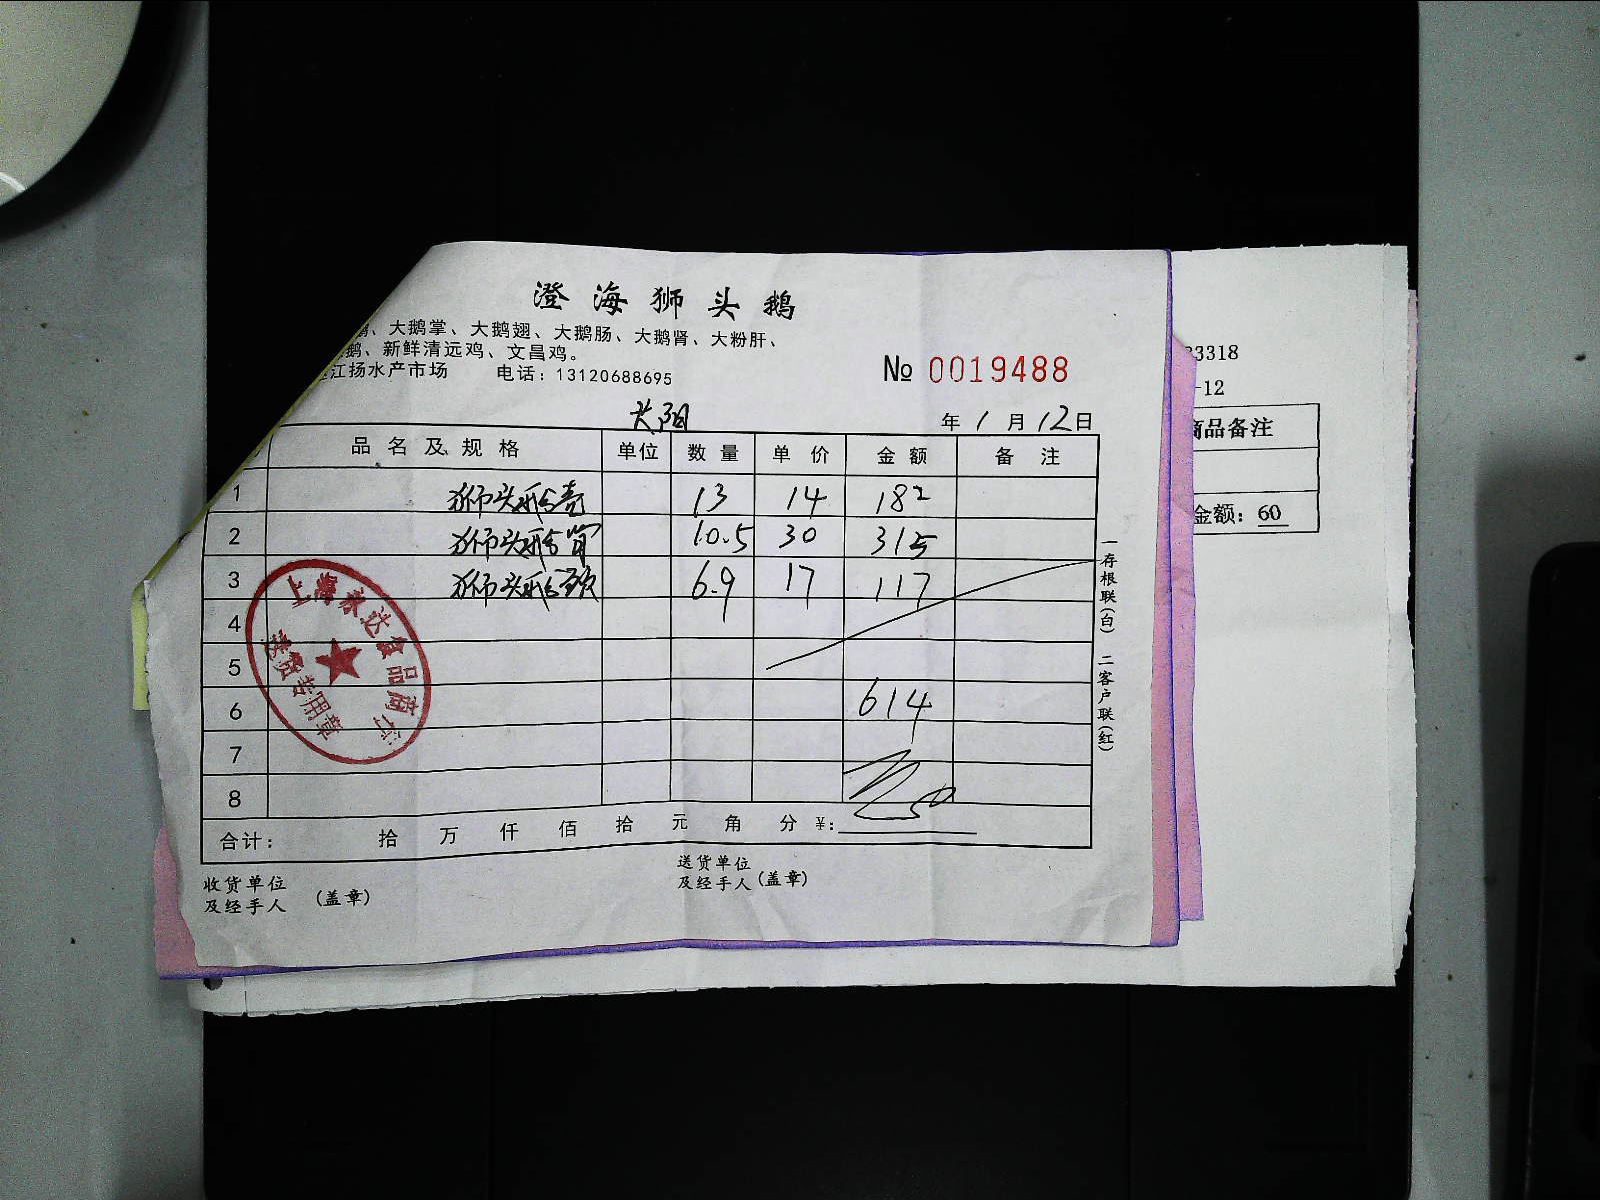 澄海狮头鹅
鹅、大鹅掌、大鹅翅、大鹅肠、大鹅肾、大粉肝、
鹅、新鲜清远鸡、文昌鸡。
江扬水产市场 电话：13120688695
№ 0019488
太阳
年 1 月 12 日
品名及规格 单位 数量 单价 金额 备注
1 狮头鹅壳 13 14 182
2 狮头鹅 10.5 30 315
3 狮头鹅颈 6.9 17 117
4
5
6 614
7
8
合计： 拾 万 仟 佰 拾 元 角 分 ¥:
收货单位
及经手人 （盖章）
送货单位
及经手人（盖章）
一存根联(白) 二客户联(红)
上海永达食品商行
送货专用章
3318
-12
商品备注
金额：60